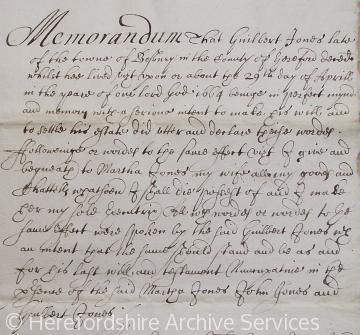 Memorandum That Guilbert Jones late
of the towne of in the County of Hereford deced
whilst hee lived vizt upon or about the 29th day of Aprill
in the yeare of our lord god 1664 beinge in perfect mynd
and memory with a serious intent to make his will and
to settle his estate did utter and declare these wordes
followeinge or wordes to the same effect vizt I give and
bequeath to Martha Jones my wife all my goods and
Chattells whatsoev I shall die possest of and I make
her my sole Executrix wordes or wordes to the
same effect were spoken by the said Guilbert Jones wth
an intent that the same should stand and be as and
for his last will and testament Nuncupative in the
psence of the said Martha Jones John Jones and
Guilbert Jones
© Herefordshire Archive Services